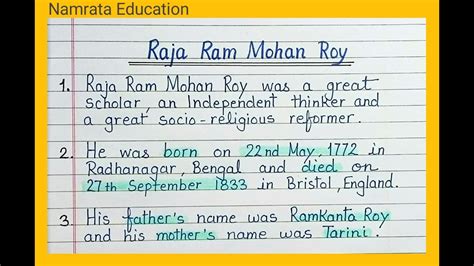 Namrata Education
Raja Ram Mohan Roy
1. Raja Ram Mohan Roy was a great
scholar, an Independent thinker and
a great socio-religious reformer.
2. He was born on 22nd May, 1772 in
Radhanagar, Bengal and died on
27th September 1833 in Bristol, England.
3. His father's name was Ramkanta Roy
and his mother's name was Tarini.